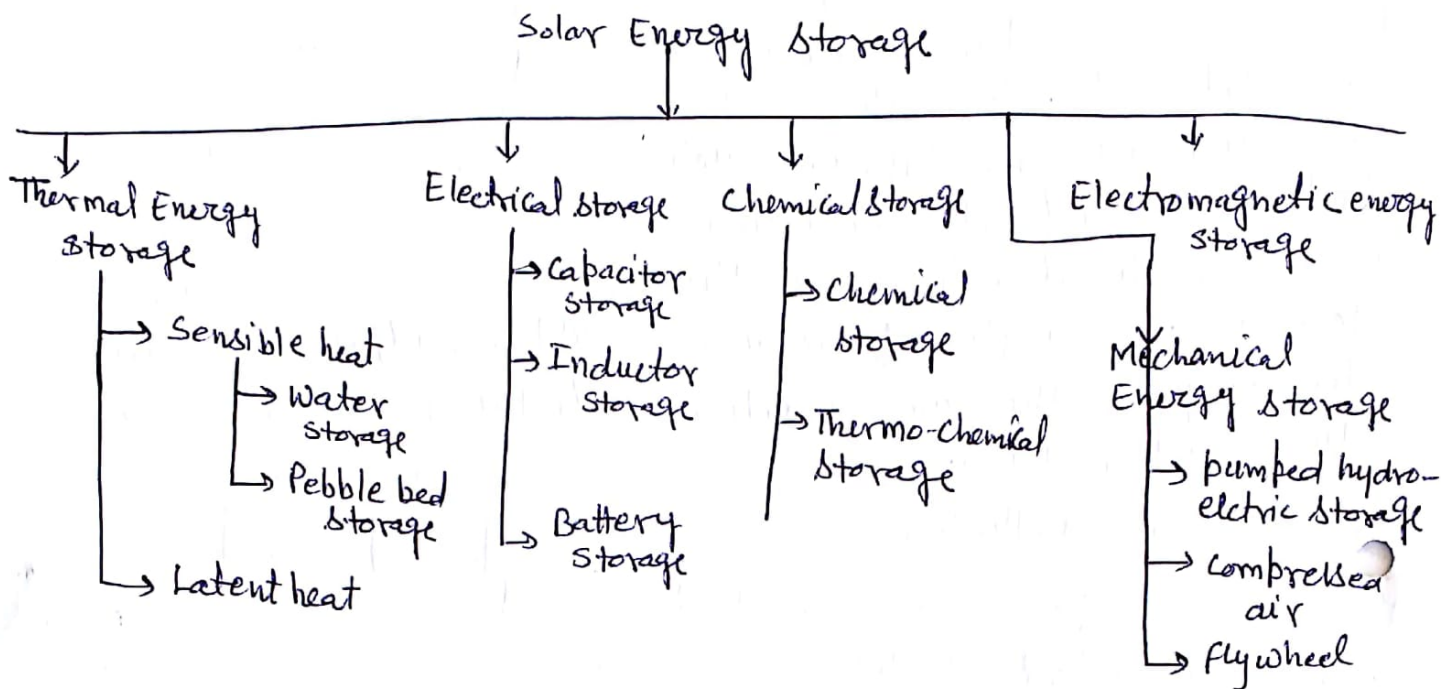 Solar Energy Storage
Thermal Energy
Storage
Sensible heat
Water
Storage
Pebble bed
Storage
Latent heat
Electrical Storage
Capacitor
Storage
Inductor
Storage
Battery
Storage
Chemical Storage
Chemical
Storage
Thermo-Chemical
Storage
Electromagnetic energy
Storage
Mechanical
Energy Storage
pumped hydro-
elctric Storage
compressed
air
flywheel